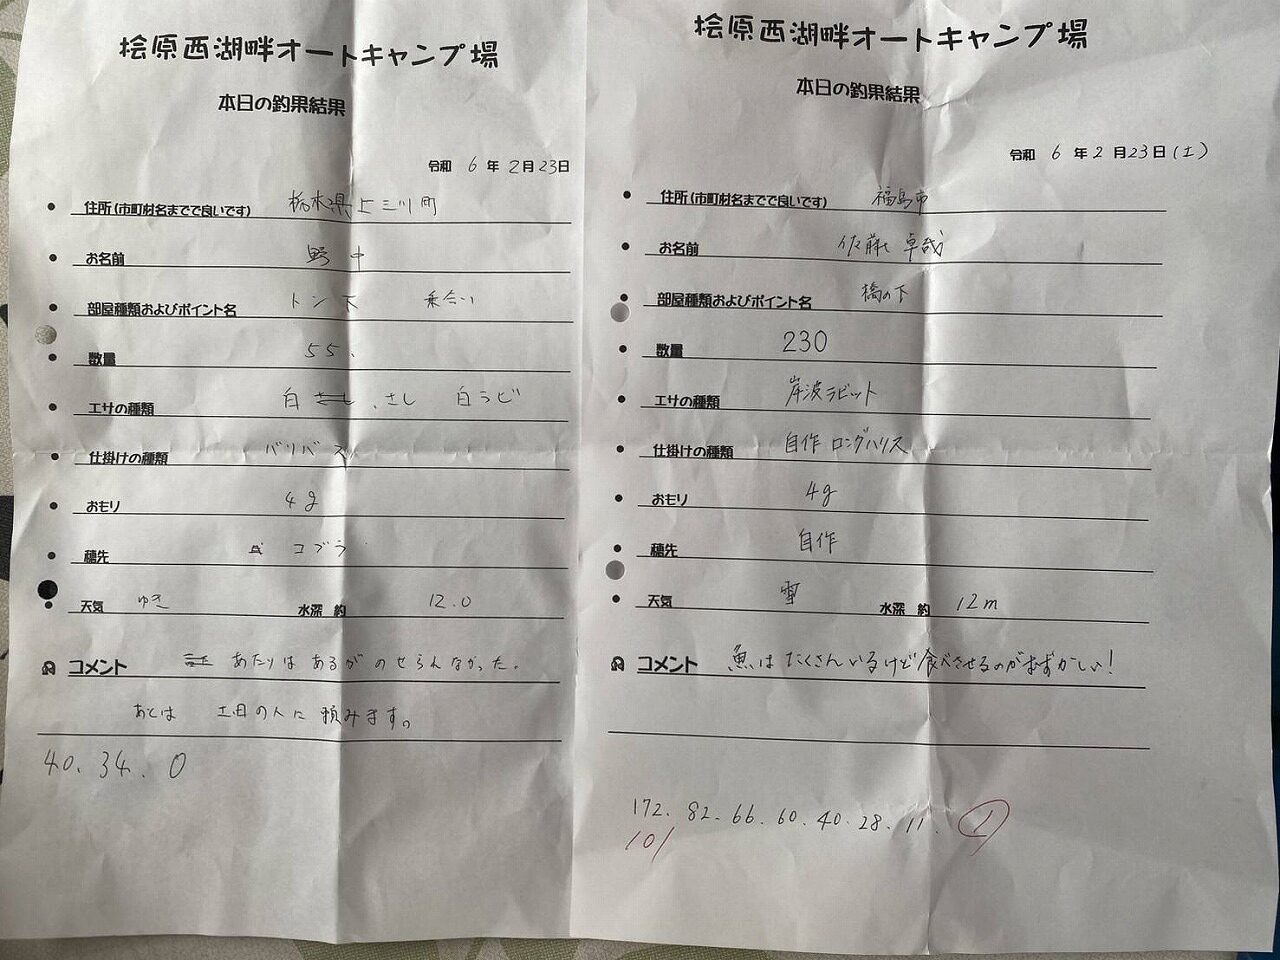 桧原西湖畔オートキャンプ場
本日の釣果結果
令和 6 年 2月23日
住所(市町村名までで良いです) 栃木県上三川町
お名前 野中
部屋種類およびポイント名 トン下 乗合い
数量 55.
エサの種類 白 さし 、さし 白ラビ
仕掛けの種類 バリバス
おもり 4g
穂先 コブラ
天気 ゆき 水深 約 12.0
コメント あたりはあるがのせらんなかった。
あとは 土日の人に頼みます。
40. 34. 0
桧原西湖畔オートキャンプ場
本日の釣果結果
令和 6 年 2 月 23 日 (土)
住所(市町村名までで良いです) 福島市
お名前 佐藤 卓哉
部屋種類およびポイント名 橋の下
数量 230
エサの種類 岸波ラビット
仕掛けの種類 自作 ロングハリス
おもり 4g
穂先 自作
天気 雪 水深 約 12m
コメント 魚はたくさんいるけど食べさせるのがむずかしい!
172. 82. 66. 60. 40. 28. 11. 1
101